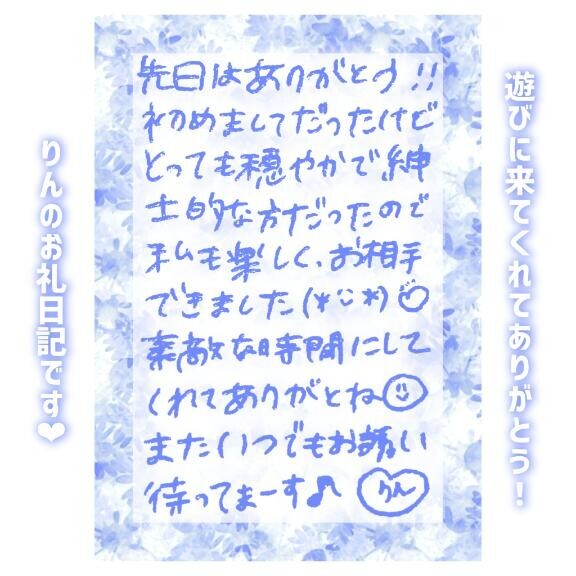 遊びに来てくれてありがとう！
先日はありがとう!!
初めましてだったけど
とっても穏やかで紳
士的な方だったので
私も楽しく、お相手
できました(*¨*)♡
素敵な時間にして
くれてありがとね☺
またいつでもお誘い
待ってまーす♪ りん
りんのお礼日記です❤